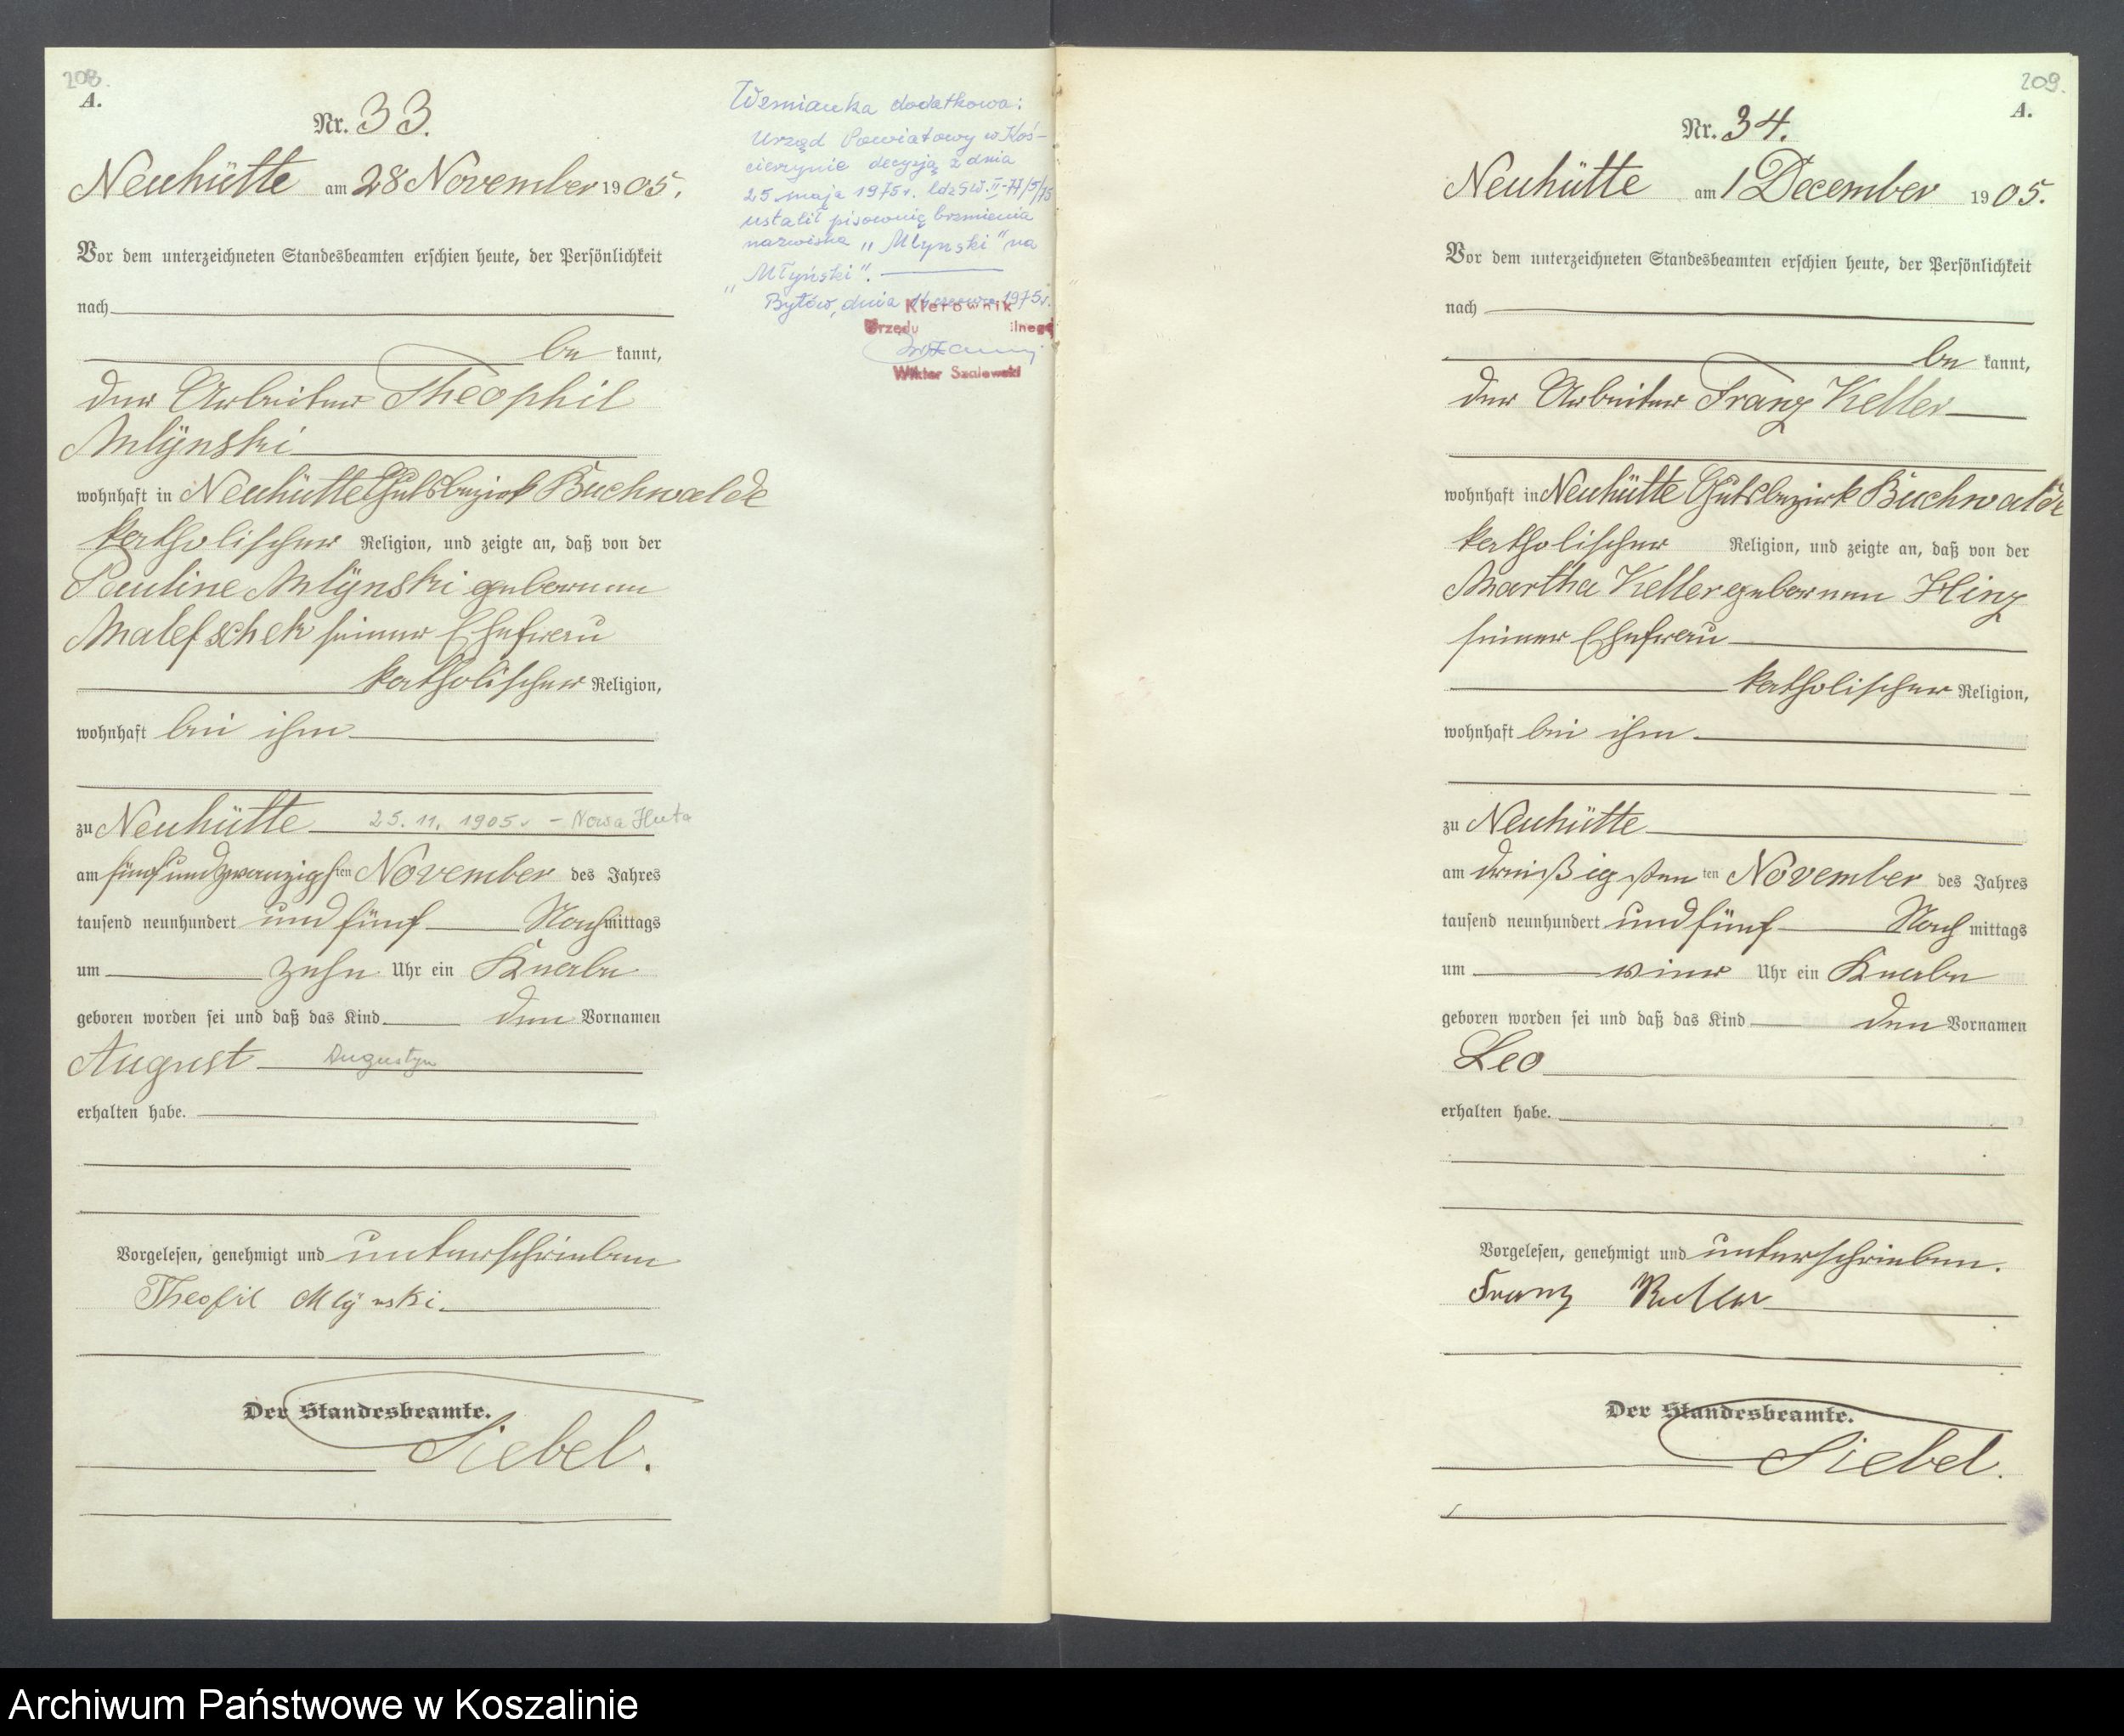 208.
A.
Nr. 33.
Neuhütte am 28 November 1905.
Vor dem unterzeichneten Standesbeamten erschien heute, der Persönlichkeit
nach
be kannt,
der Arbeiter Theophil
Mlynski
wohnhaft in Neuhütte Gutsbezirk Buchwalde
katholischer Religion, und zeigte an, daß von der
Pauline Mlynski geborenen
seiner Ehefrau
katholischer Religion,
wohnhaft bei ihm
zu Neuhütte 25. 11. 1905 r – Nowa Huta
am fünfundzwanzigsten November des Jahres
tausend neunhundert und fünf Nachmittags
um zehn Uhr ein Knabe
geboren worden sei und daß das Kind den Vornamen
August Augustyn
erhalten habe.
Vorgelesen, genehmigt und unterschrieben
Theofil Mlÿnski.
Der Standesbeamte.
Siebel.
Wzmianka dodatkowa:
Urząd Powiatowy w Koś-
cierzynie decyzją z dnia
25 maja 1975 r. ldz SW. II-77/5/75
ustalił pisownię brzmienia
nazwiska „Mlynski" na
„Młyński".
Bytów, dnia czerwca 1975 r.
Kierownik
Urzędu ilnego
Wiktor Szalewski
209.
A.
Nr. 34.
Neuhütte am 1 December 1905.
Vor dem unterzeichneten Standesbeamten erschien heute, der Persönlichkeit
nach
be kannt,
der Arbeiter Franz Keller
wohnhaft in Neuhütte Gutsbezirk Buchwalde
katholischer Religion, und zeigte an, daß von der
Martha Keller geborenen Hinz
seiner Ehefrau
katholischer Religion,
wohnhaft bei ihm.
zu Neuhütte
am dreißigsten ten November des Jahres
tausend neunhundert und fünf Nach mittags
um vier Uhr ein Knabe
geboren worden sei und daß das Kind den Vornamen
Leo
erhalten habe.
Vorgelesen, genehmigt und unterschrieben.
Franz Keller
Der Standesbeamte.
Siebel.
Archiwum Państwowe w Koszalinie